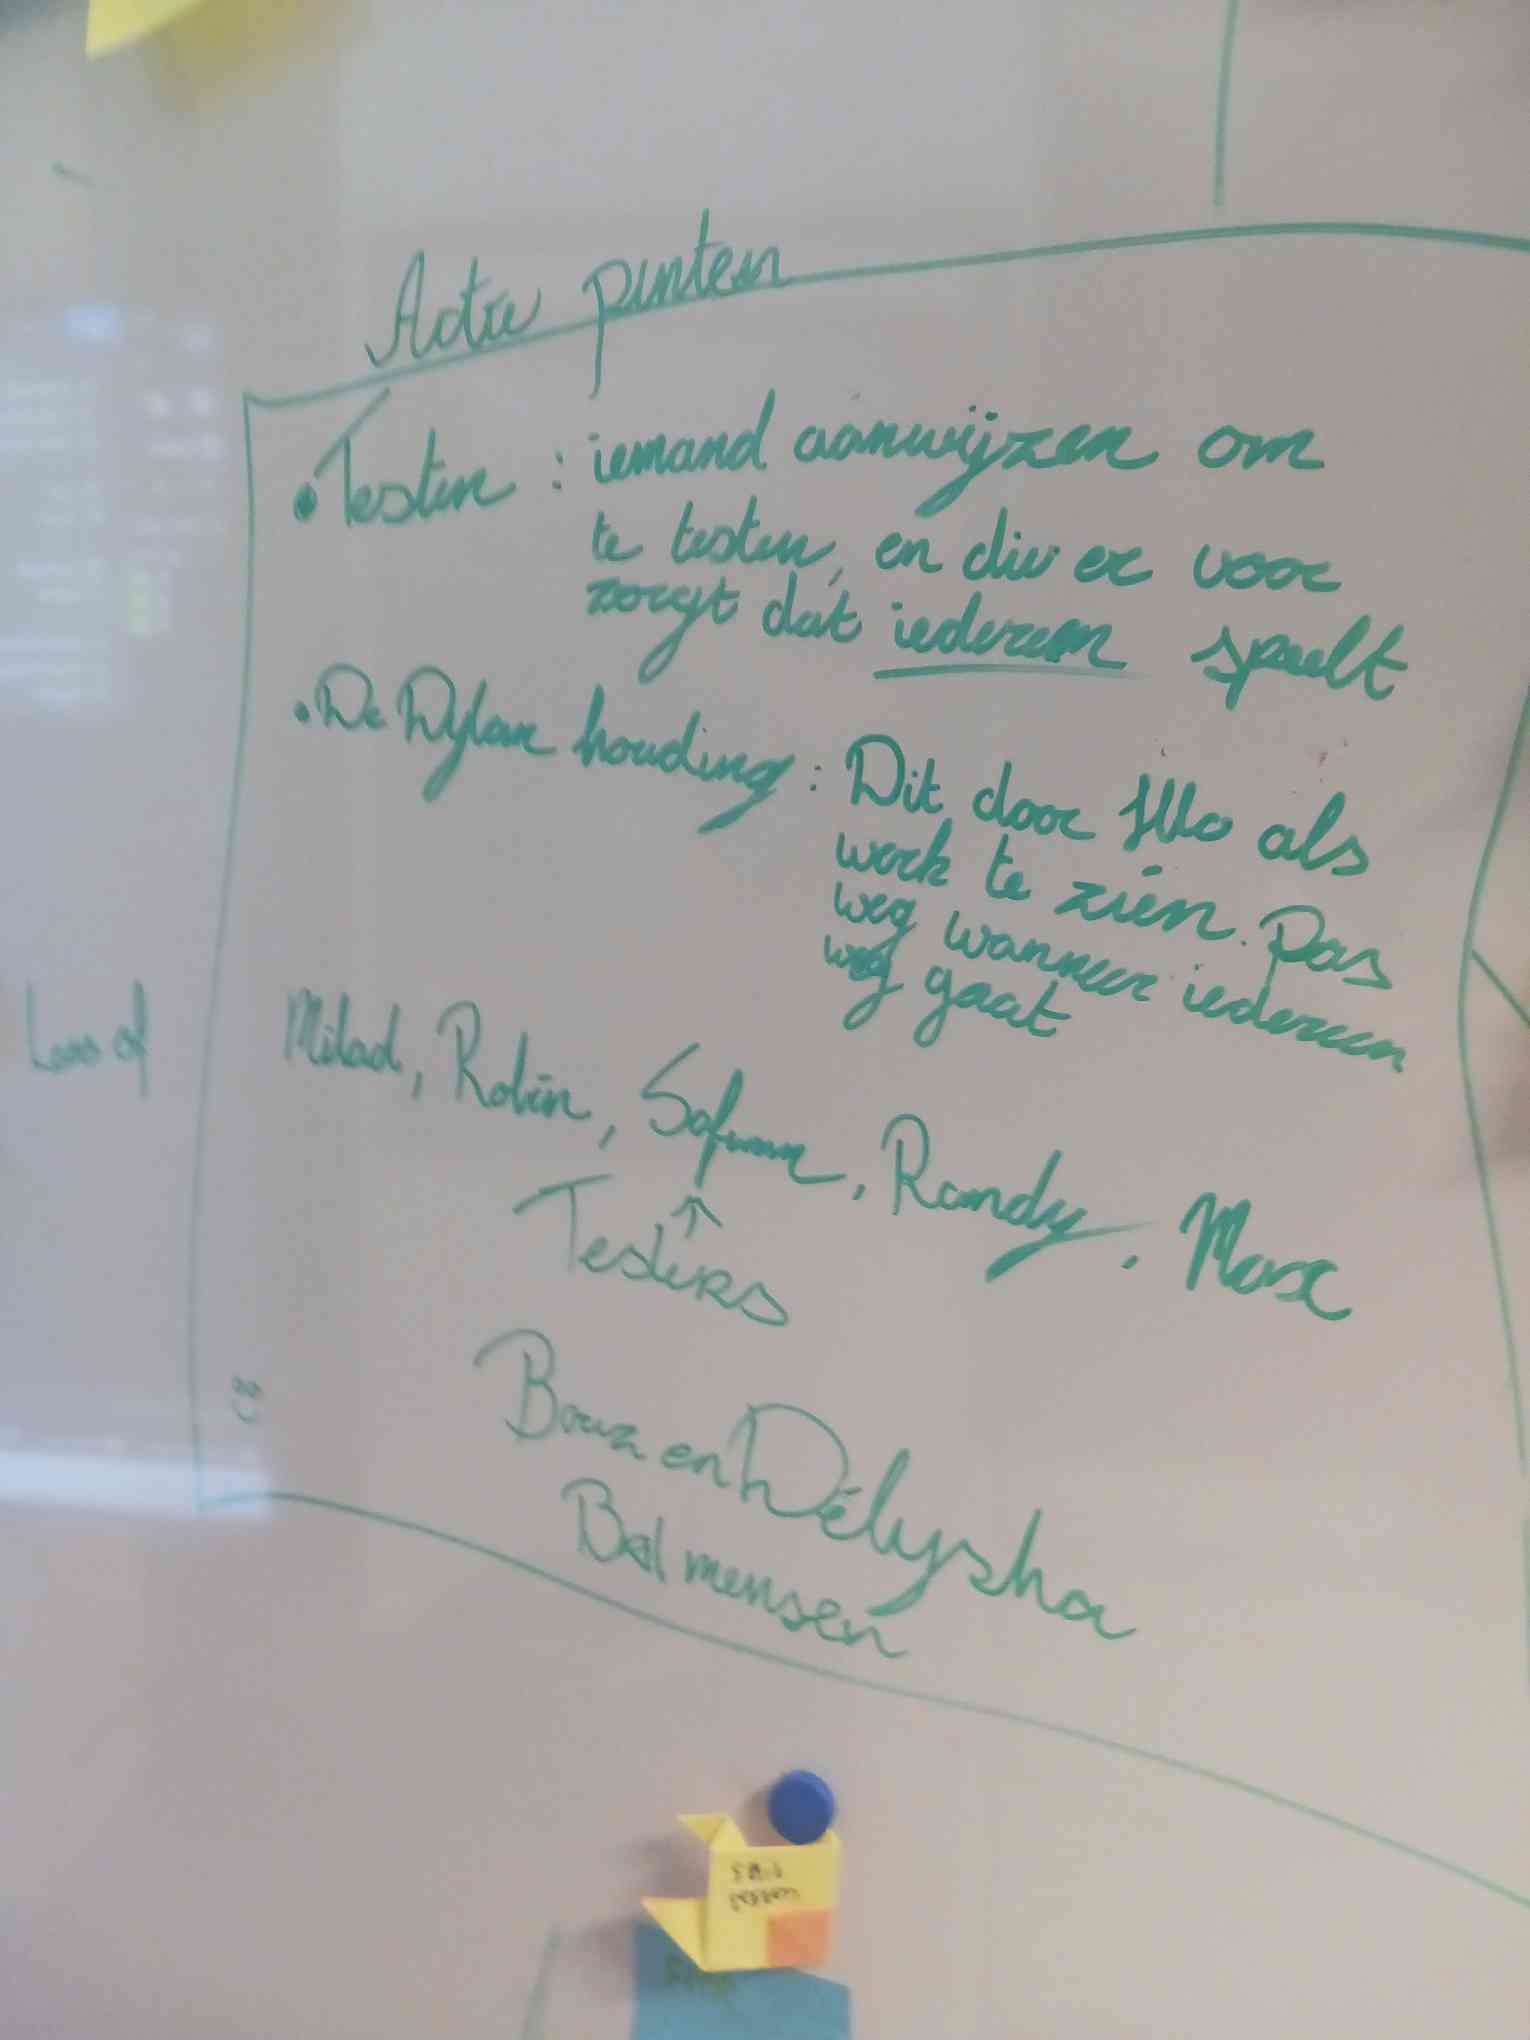 Actie punten
• Testen : iemand aanwijzen om
te testen, en die er voor
zorgt dat iedereen speelt
• De Dylan houding : Dit door HBO als
werk te zien. Pas
weg wanneer iedereen
weg gaat
Loss of
Milad, Robin, Sofian, Randy, Max
↑
Testers
Bouz en Délysha
Bel mensen